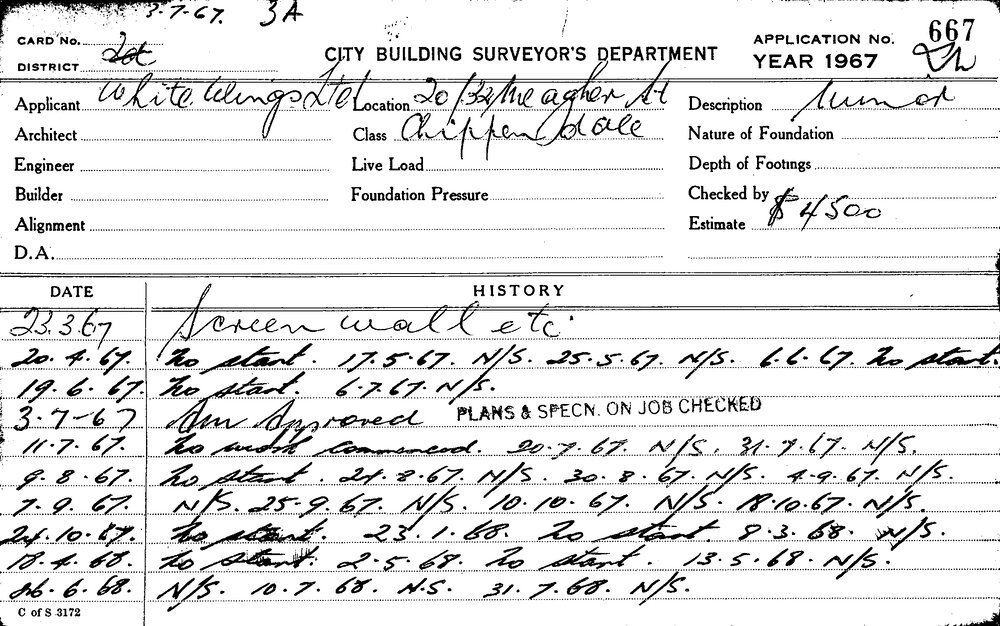 3-7-67. 3A
667
CARD No.
DISTRICT
CITY BUILDING SURVEYOR'S DEPARTMENT
APPLICATION No.
YEAR 1967
Applicant White Wings Ltd Location 20/32 Meagher St Description Minor
Architect Class Chippendale Nature of Foundation
Engineer Live Load Depth of Footings
Builder Foundation Pressure Checked by
Alignment Estimate $4500
D.A.
DATE HISTORY
23.3.67 Screen wall etc.
20.4.67. No start. 17.5.67. N/S. 25.5.67. N/S. 6.6.67. No start.
19.6.67. No start. 6.7.67. N/S.
3-7-67 Approved PLANS & SPECN. ON JOB CHECKED
11.7.67. No work commenced. 20.7.67. N/S. 31.7.67. N/S.
9.8.67. No start. 24.8.67. N/S. 30.8.67. N/S. 4.9.67. N/S.
7.9.67. N/S. 25.9.67. N/S. 10.10.67. N/S. 18.10.67. N/S.
24.10.67. No start. 23.1.68. No start. 8.3.68. N/S.
18.4.68. No start. 2.5.68. No start. 13.5.68. N/S.
26.6.68. N/S. 10.7.68. N.S. 31.7.68. N/S.
C of S 3172